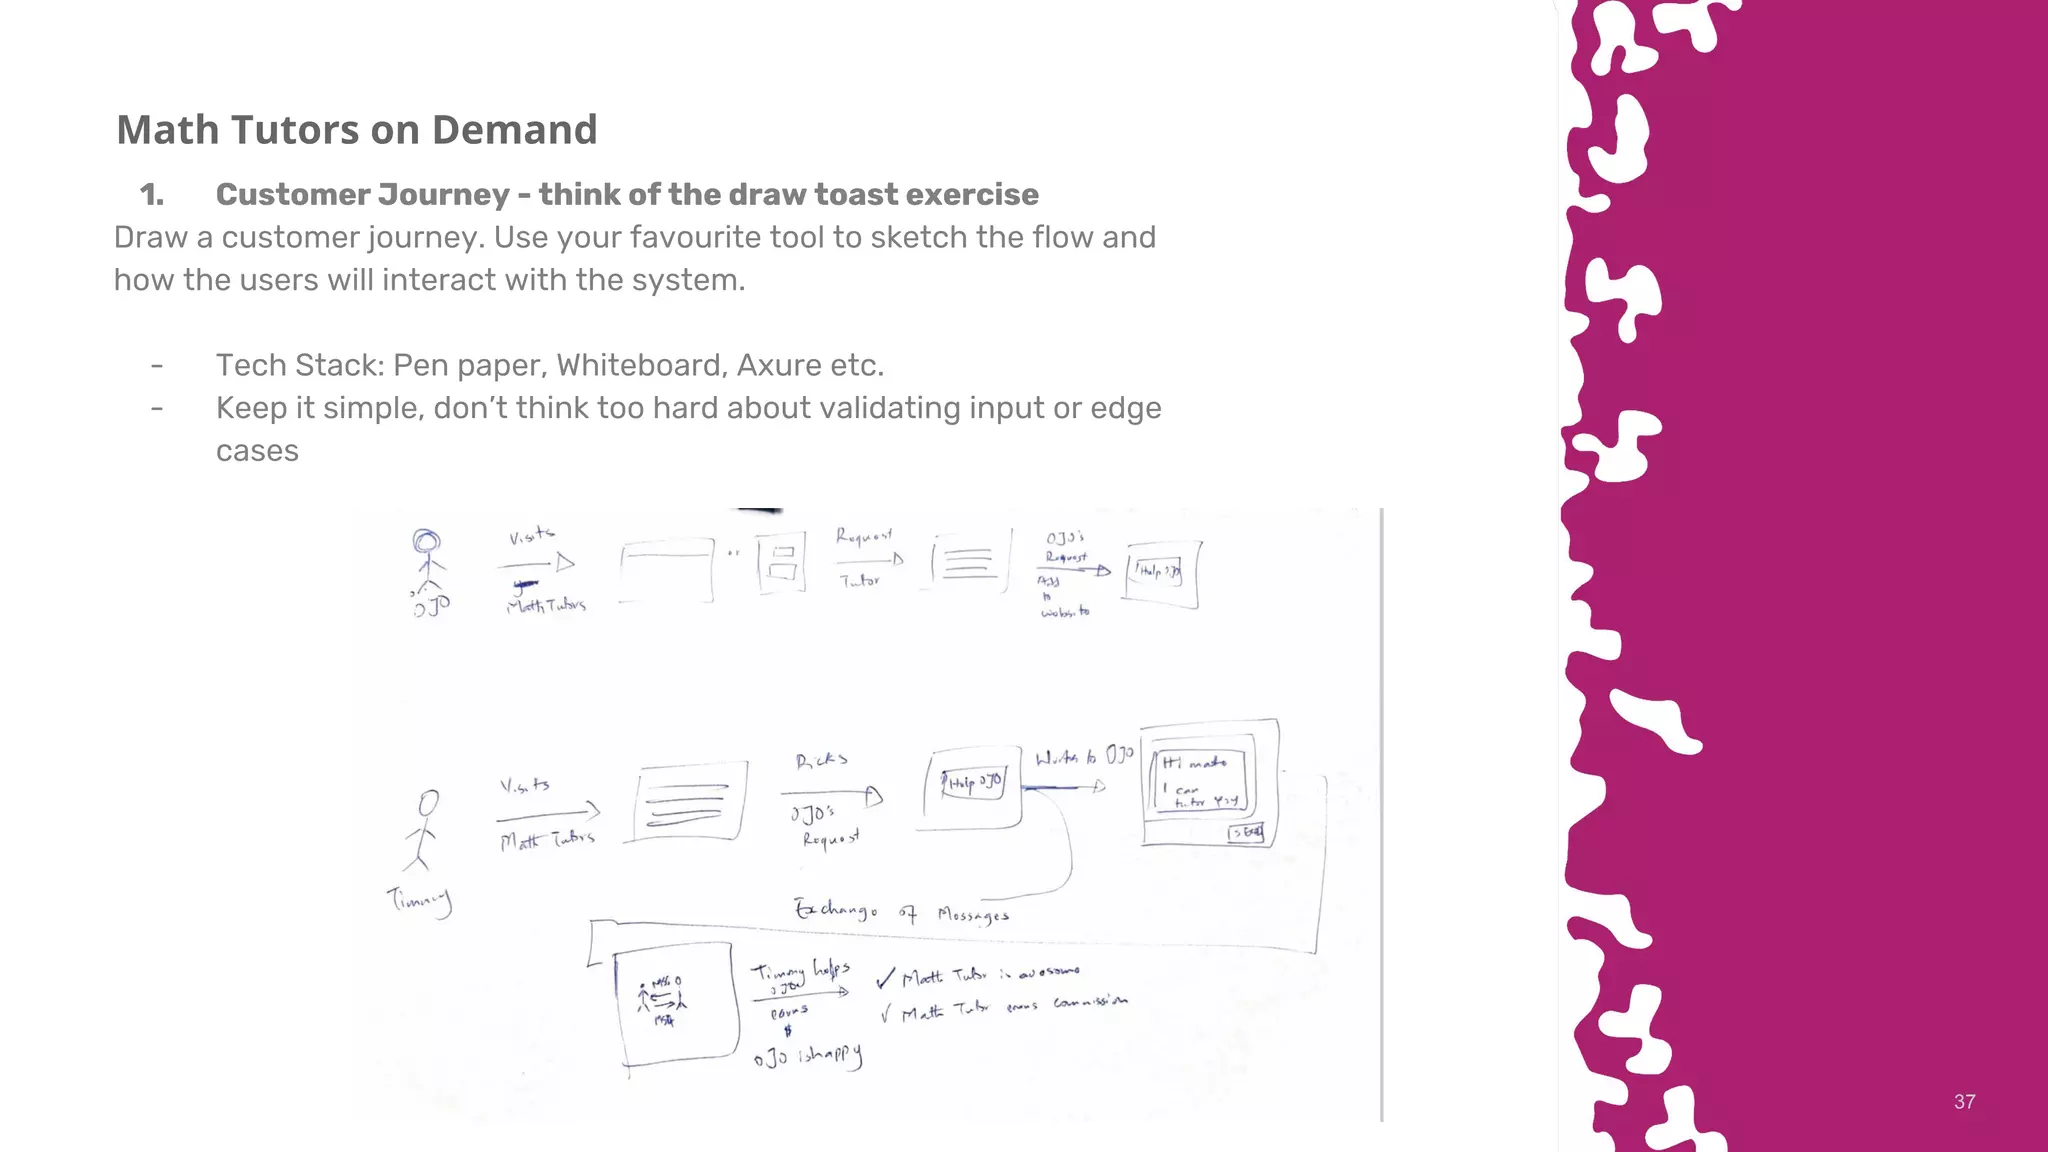 Math Tutors on Demand
1. Customer Journey - think of the draw toast exercise
Draw a customer journey. Use your favourite tool to sketch the flow and
how the users will interact with the system.
- Tech Stack: Pen paper, Whiteboard, Axure etc.
- Keep it simple, don't think too hard about validating input or edge
cases
Visits
Math Tutors
OJO
or
Request
Tutor
OJO's
Request
Add
to
website
Help OJO
Timmy
Visits
Math Tutors
Picks
OJO's
Request
Help OJO
Writes to OJO
Hi mate
I can
tutor you
SEND
Exchange of Messages
MSG
MSG
Timmy helps
OJO
earns
$
OJO is happy
✓ Math Tutor is awesome
✓ Math Tutor earns commission
37